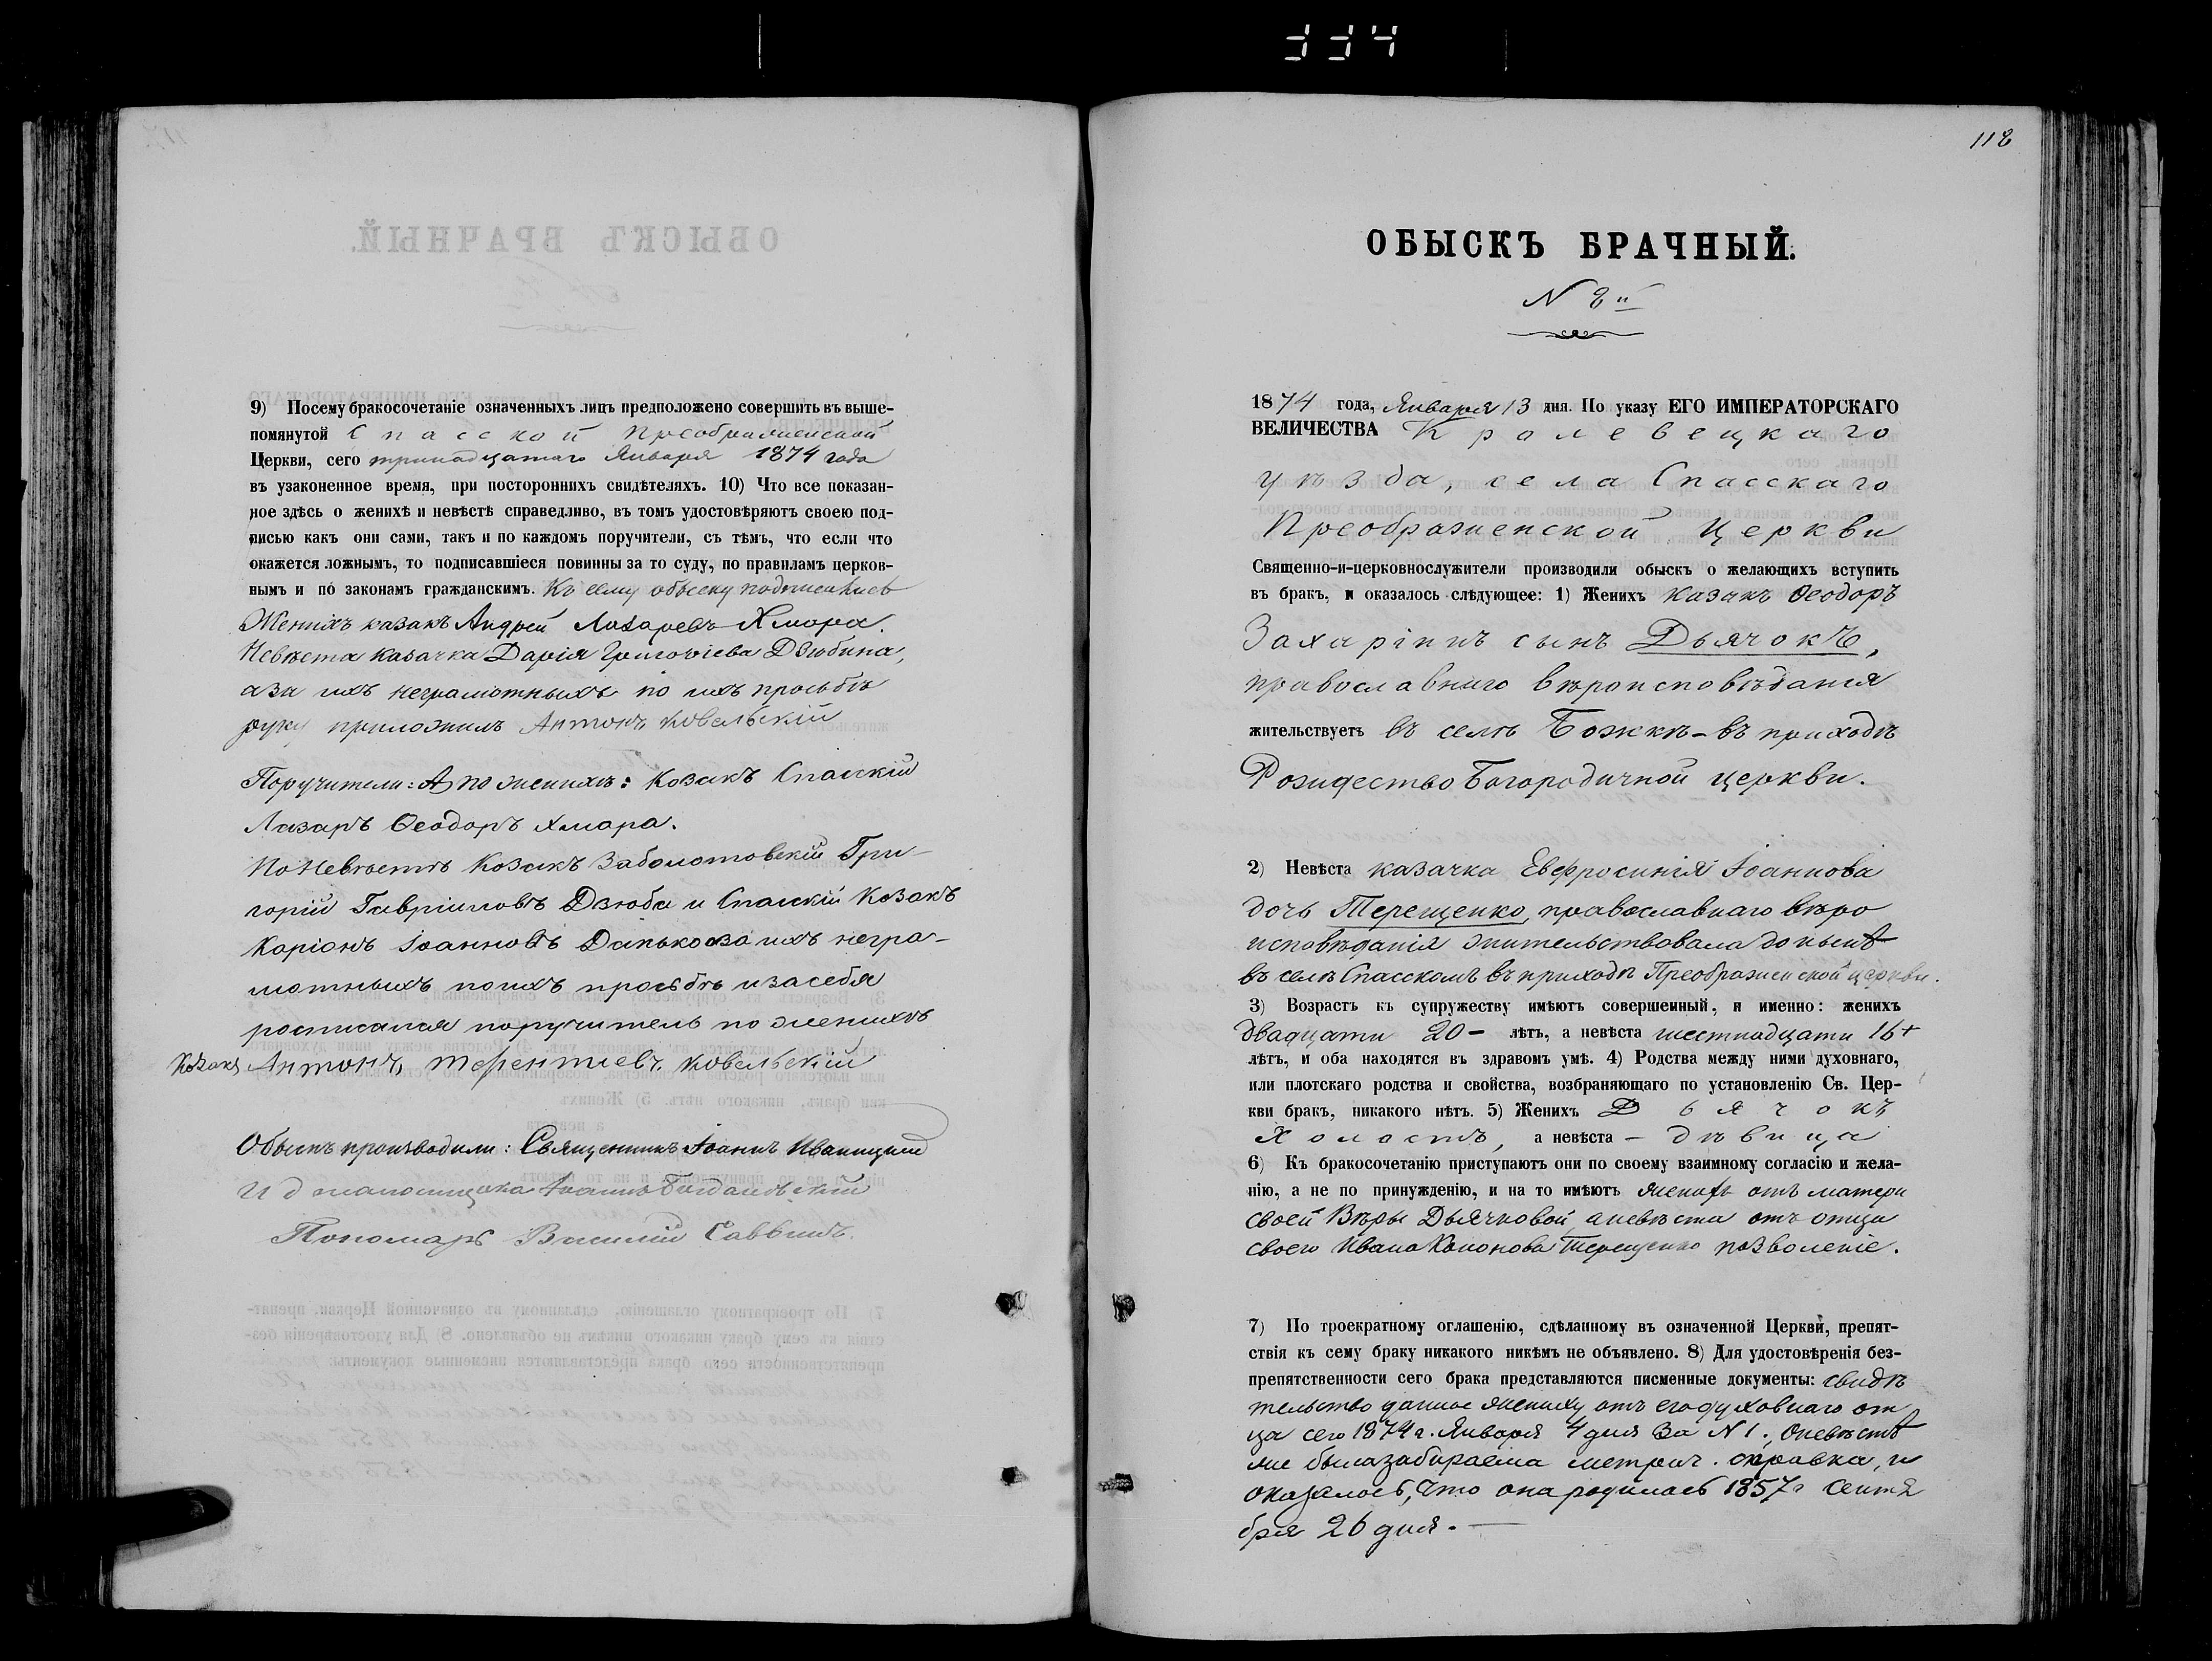 334
9) Посему бракосочетаніе означенныхъ лицъ предположено совершить въ выше-
помянутой Спасской Преображенской
Церкви, сего тринадцатаго Января 1874 года
въ узаконенное время, при постороннихъ свидѣтеляхъ. 10) Что все показан-
ное здѣсь о женихѣ и невѣстѣ справедливо, въ томъ удостовѣряютъ своею под-
писью какъ они сами, такъ и по каждомъ поручители, съ тѣмъ, что если что
окажется ложнымъ, то подписавшіеся повинны за то суду, по правиламъ церков-
нымъ и по законамъ гражданскимъ. Къ сему обыску подписались
Женихъ казакъ Андрей Лазаревъ Хмара.
Невѣста казачка Дарія Григоріева Дзюбина,
а за ихъ неграмотныхъ по ихъ просьбѣ
руку приложилъ Антонъ Ковальскій
Поручители: по женихѣ: Козакъ Спаскій
Лазаръ Ѳеодоръ Хмара.
По Невѣстѣ Козакъ Заболотовскій Гри-
горій Гавріиловъ Дзюба и Спаскій Козакъ
Каріонъ Іоанновъ Данько а за ихъ негра-
мотныхъ по ихъ просьбѣ и за себя
росписался поручитель по женихѣ
Козакъ Антонъ Терентіевъ Ковальскій
Обыскъ производили: Священникъ Іоаннъ Иваницкій
И д Іоаннъ Богдановскій
Пономарь Василій Саввинъ
118
ОБЫСКЪ БРАЧНЫЙ.
N 8й
1874 года, Января 13 дня. По указу ЕГО ИМПЕРАТОРСКАГО
ВЕЛИЧЕСТВА Кролевецкаго
уѣзда, села Спасскаго
Преображенской Церкви
Священно-и-церковнослужители производили обыскъ о желающихъ вступить
въ бракъ, и оказалось слѣдующее: 1) Женихъ казакъ Ѳеодоръ
Захаріинъ сынъ Дьячокъ,
православнаго вѣроисповѣданія
жительствуетъ въ селѣ Божкѣ - въ приходѣ
Рождество Богородичной церкви.
2) Невѣста казачка Евфросинія Іоаннова
дочь Терещенко, православнаго вѣро
исповѣданія жительствовала до нынѣ
въ селѣ Спасскомъ въ приходѣ Преображенской церкви.
3) Возрастъ къ супружеству имѣютъ совершенный, и именно: женихъ
двадцати 20 - лѣтъ, а невѣста шестнадцати 16+
лѣтъ, и оба находятся въ здравомъ умѣ. 4) Родства между ними духовнаго,
или плотскаго родства и свойства, возбраняющаго по установленію Св. Цер-
кви бракъ, никакого нѣтъ. 5) Женихъ Дьячокъ
Холостъ, а невѣста - дѣвица
6) Къ бракосочетанію приступаютъ они по своему взаимному согласію и жела-
нію, а не по принужденію, и на то имѣютъ женихъ отъ матери
своей Вѣры Дьячковой а невѣста отъ отца
своего Ивана Кононова Терещенко позволеніе.
7) По троекратному оглашенію, сдѣланному въ означенной Церкви, препят-
ствія къ сему браку никакого никѣмъ не объявлено. 8) Для удостовѣренія без-
препятственности сего брака представляются писменные документы: свидѣ
тельство данное жениху отъ его духовнаго от
ца сего 1874 г. Января 4 дня за N 1., О невѣстѣ
же была забираема метрич. справка, и
оказалось, что она родилась 1857 г Сентя
бря 26 дня. —